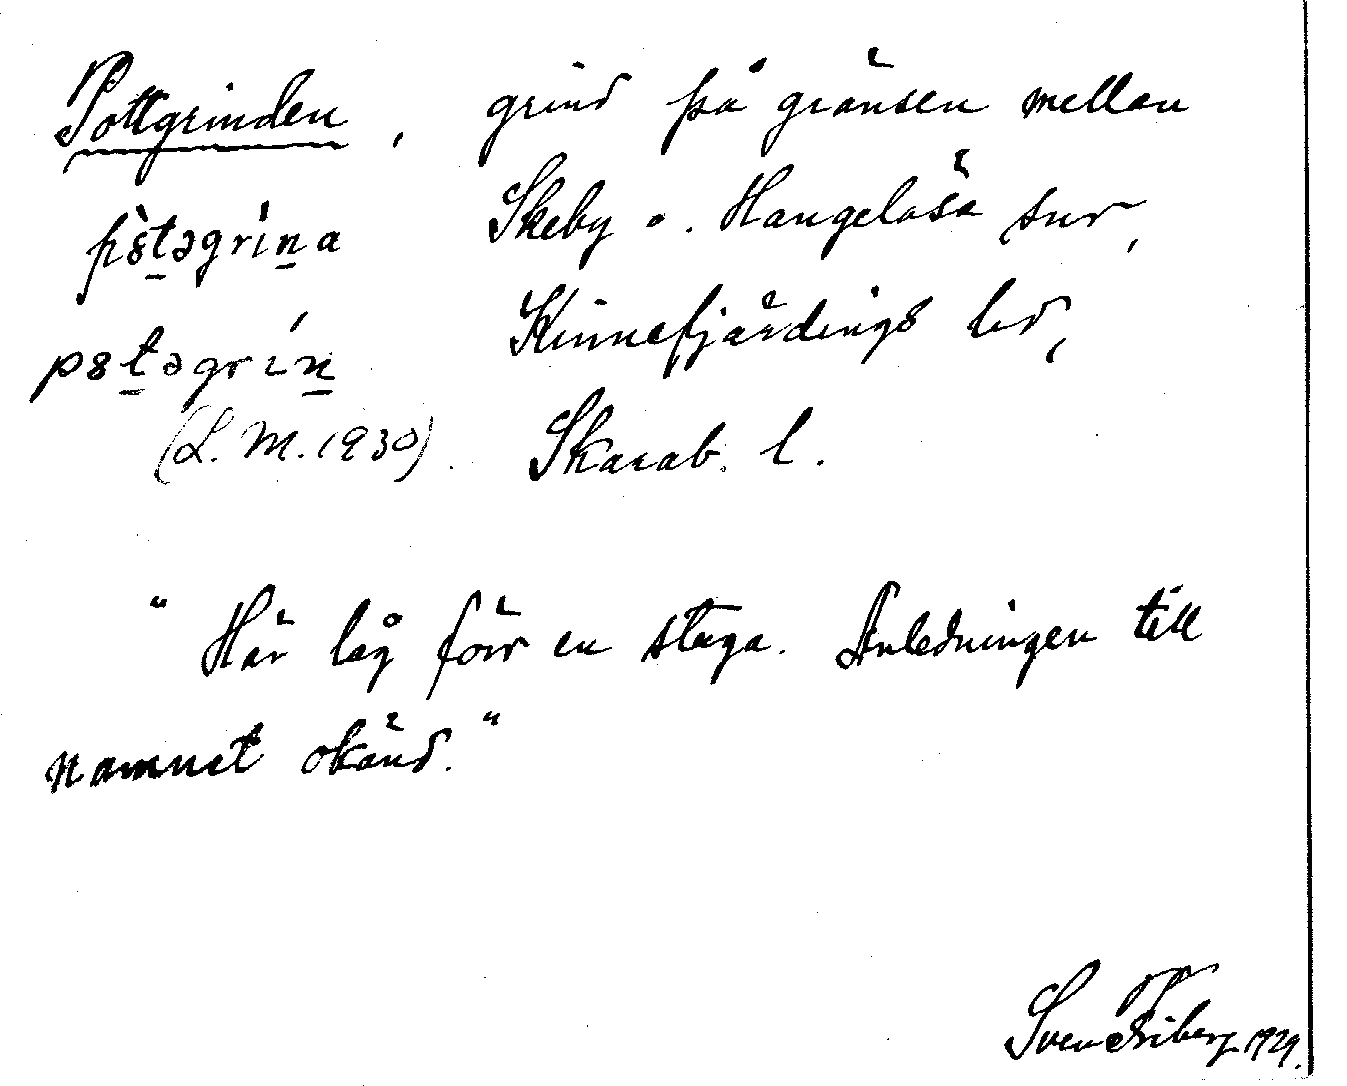 Pottgrinden, grind på gränsen mellan
pòt̠əgrìn̠a Skeby o. Hangelösa snr,
pot̠əgrín̠ Kinnefjärdings hd,
(L.M. 1930). Skarab. l.
"Här låg förr en stuga. Anledningen till
namnet okänd."
Sven Friberg 1929.